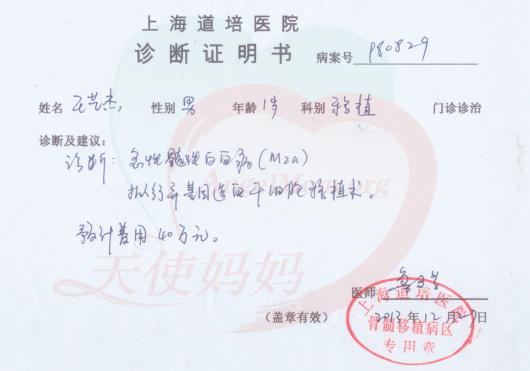 上海道培医院
诊断证明书 病案号 P80829
姓名 王艺杰 性别 男 年龄 1岁 科别 移植 门诊诊治
诊断及建议:
诊断: 急性髓性白血病(M2a)
拟行异基因造血干细胞移植术。
预计费用40万元。
AngelMom.org
天使妈妈
医师
(盖章有效) 2013年12月27日
上海道培医院
骨髓移植病区
专用章